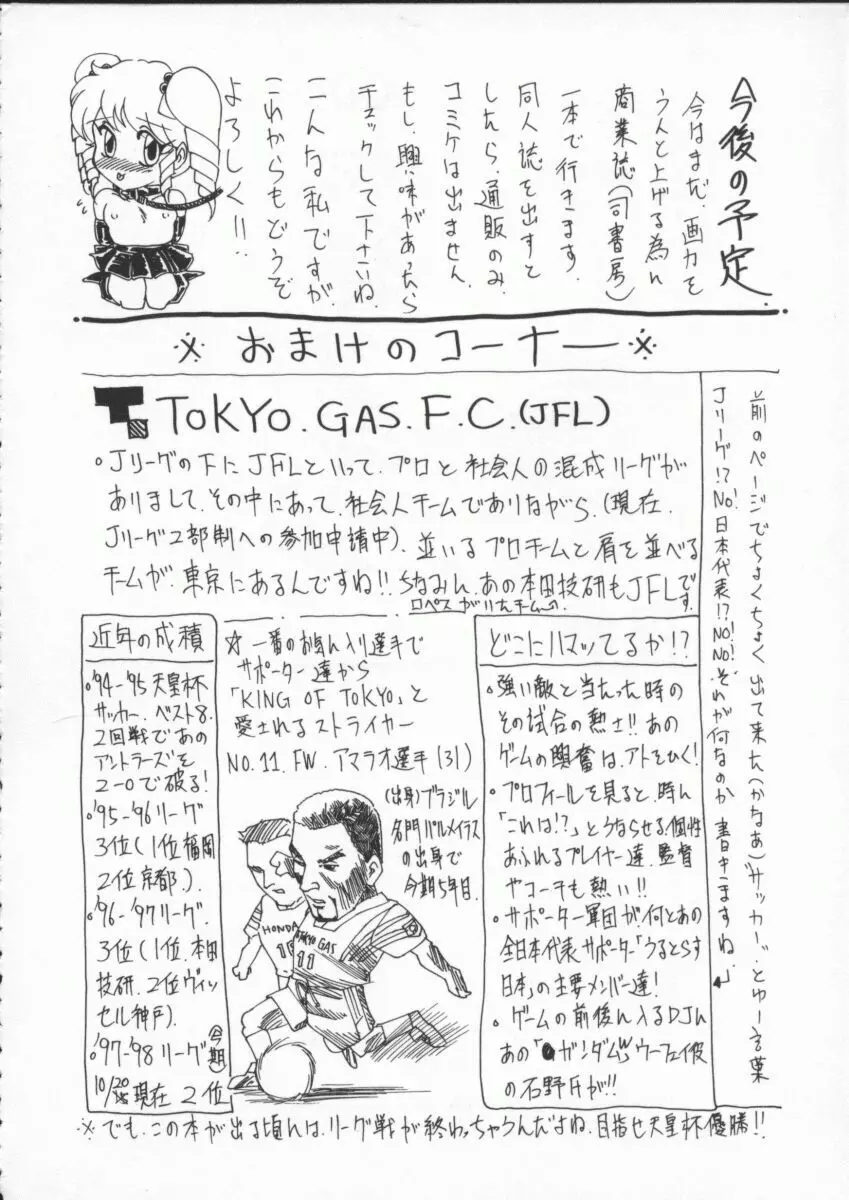 今後の予定
今はまだ、画力を
うんと上げる為に
商業誌(司書房)
一本で行きます。
同人誌を出すと
したら、通販のみ。
コミケは出ません。
もし、興味があったら
チェックして下さいね。
こんな私ですが
これからもどうぞ
よろしく!!
※おまけのコーナー※
前のページでちょくちょく出て来た(かなあ)“サッカー”とゆー言葉
Jリーグ!?No!日本代表!?NO!NO!それが何なのか書きますね。
TOKYO.GAS.F.C.(JFL)
○Jリーグの下にJFLといって、プロと社会人の混成リーグが
ありまして、その中にあって、社会人チームでありながら、(現在、
Jリーグ2部制への参加申請中)、並いるプロチームと肩を並べる
チームが、東京にあるんですね!!ちなみに、あの本田技研もJFLです。
ロペスがいたチーム
近年の成積
○'94-'95天皇杯
サッカー、ベスト8。
2回戦であの
アントラーズを
2-0で破る!
○'95-'96リーグ
3位(1位福岡
2位京都、)。
○'96-'97リーグ。
3位(1位、本田
技研、2位ヴィッ
セル神戸)。
○'97-'98リーグ(今期)
10/20現在2位
☆一番のお気に入り選手で
サポーター達から
「KING OF TOKYO」と
愛されるストライカー
NO.11.FW.アマラオ選手(31)
(出身)ブラジル
名門パルメイラス
の出身で
今期5年目。
HONDA
10
TOKYO GAS
11
どこにハマッてるか!?
○強い敵と当たった時の
その試合の熱さ!!あの
ゲームの興奮は、アトをひく!
○プロフィールを見ると、時に
「これは!?」とうならせる、個性
あふれるプレイヤー達。監督
やコーチも熱い!!
○サポーター軍団が、何とあの
全日本代表サポーター「うるとらす
日本」の主要メンバー達!
○ゲームの前後に入るDJに
あの「ガンダムW」ウーフェイ役
の石野氏が!!
※でも、この本が出る頃には、リーグ戦が終わっちゃうんだよね、目指せ天皇杯優勝!!